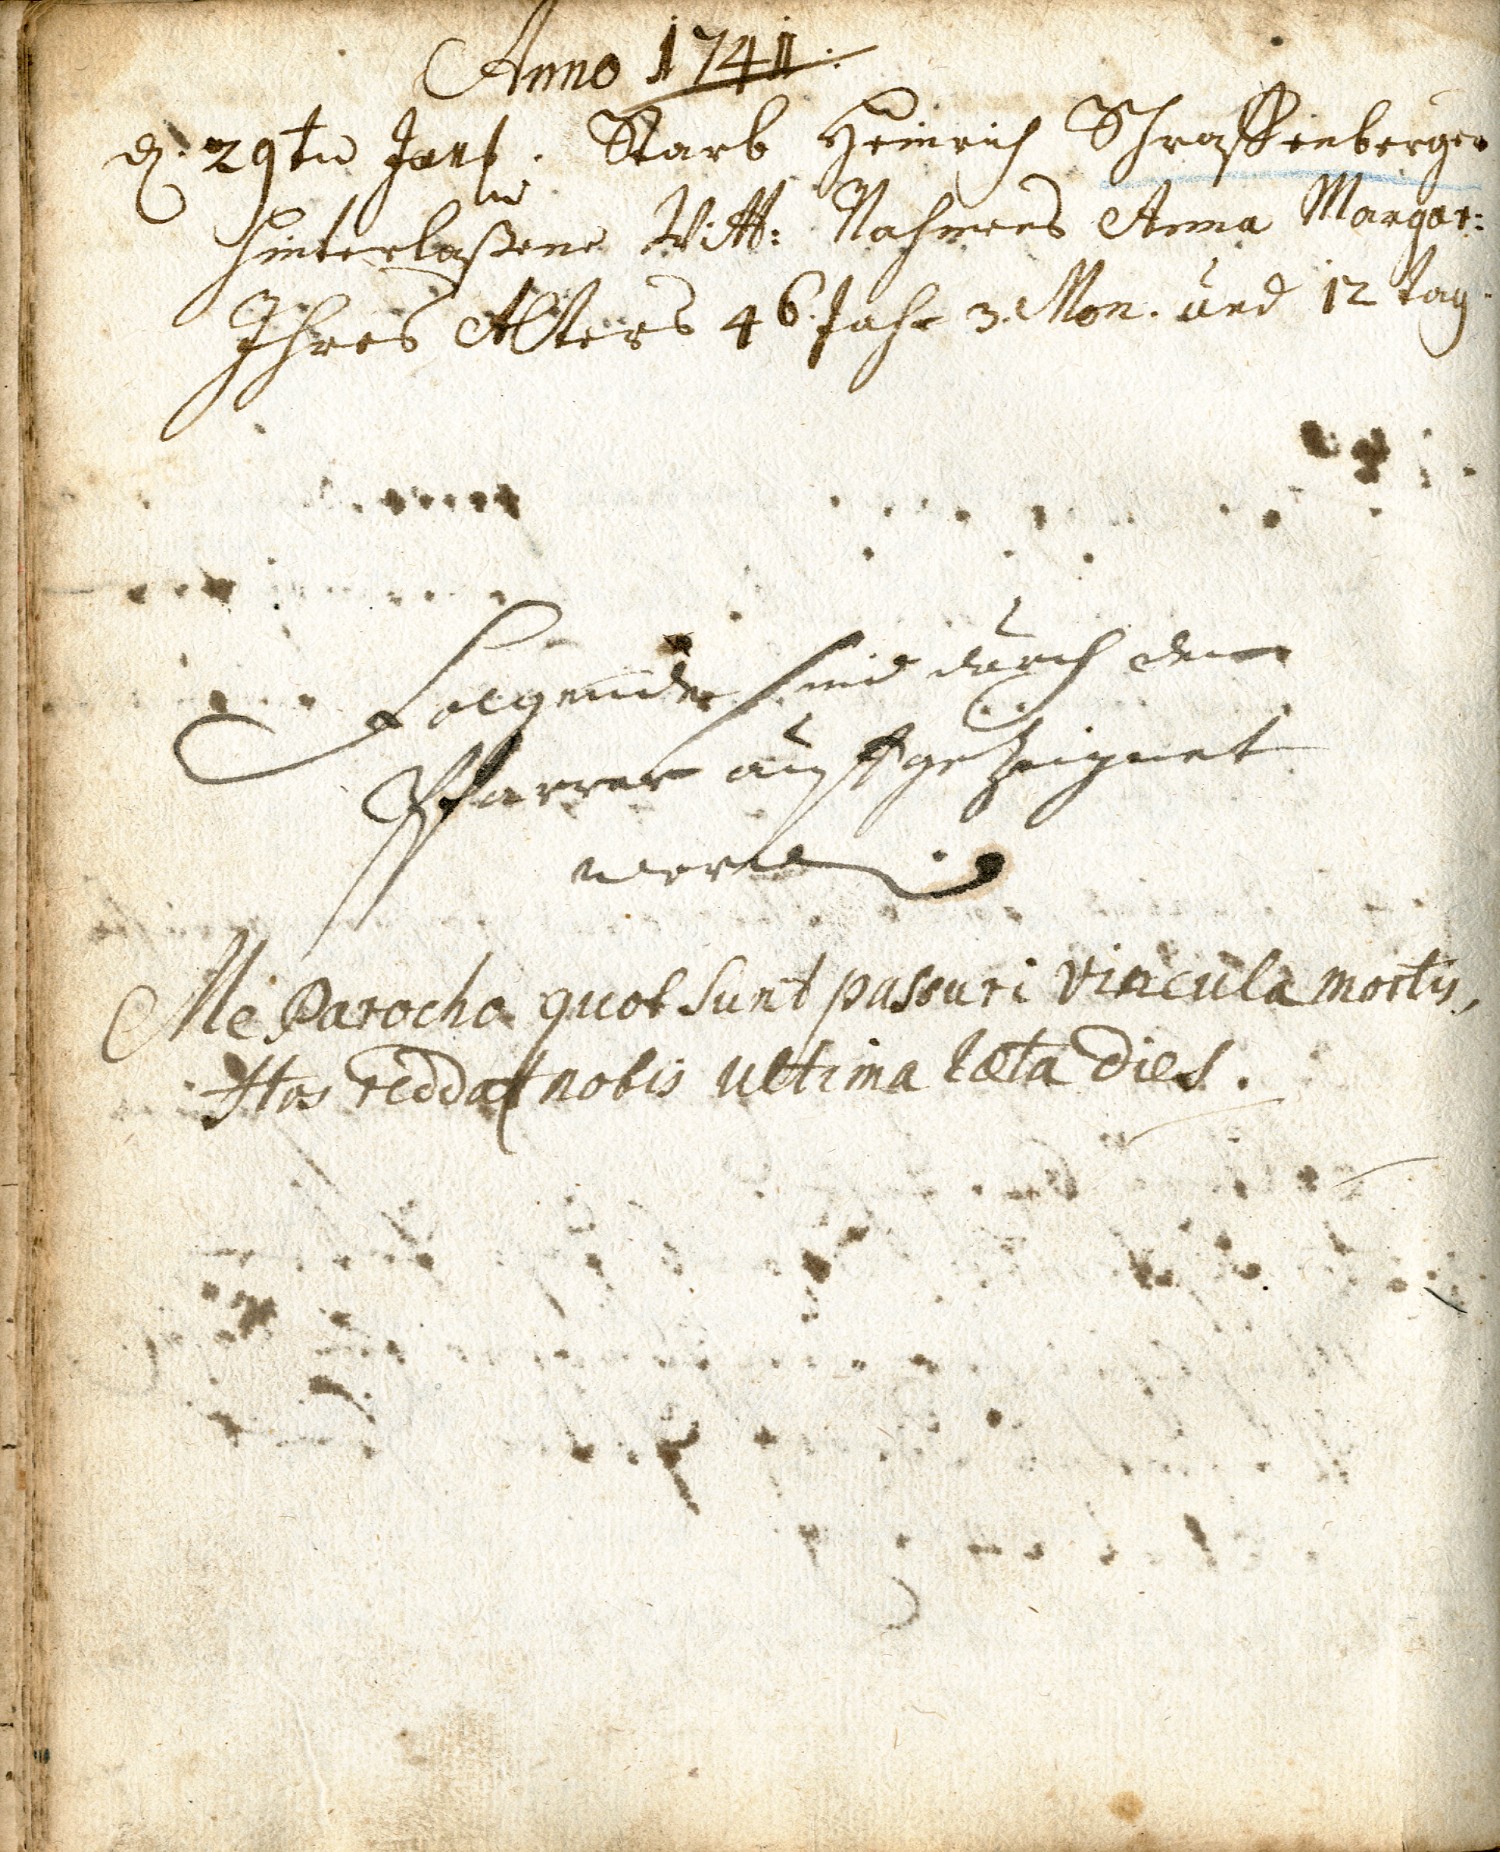 Anno 1741.
d. 29ten Jan. Starb Heinrich Schraffenberger
hinterlaßene Witt: Nahmens Anna Margar:
Ihres Alters 46. Jahr 3. Mon. und 12 tag
Folgende sind durch den
Pfarrer auffgezeignet
word
Me Parocho quot sunt passuri vincula mortis,
Hos reddat nobis ultima læta dies.